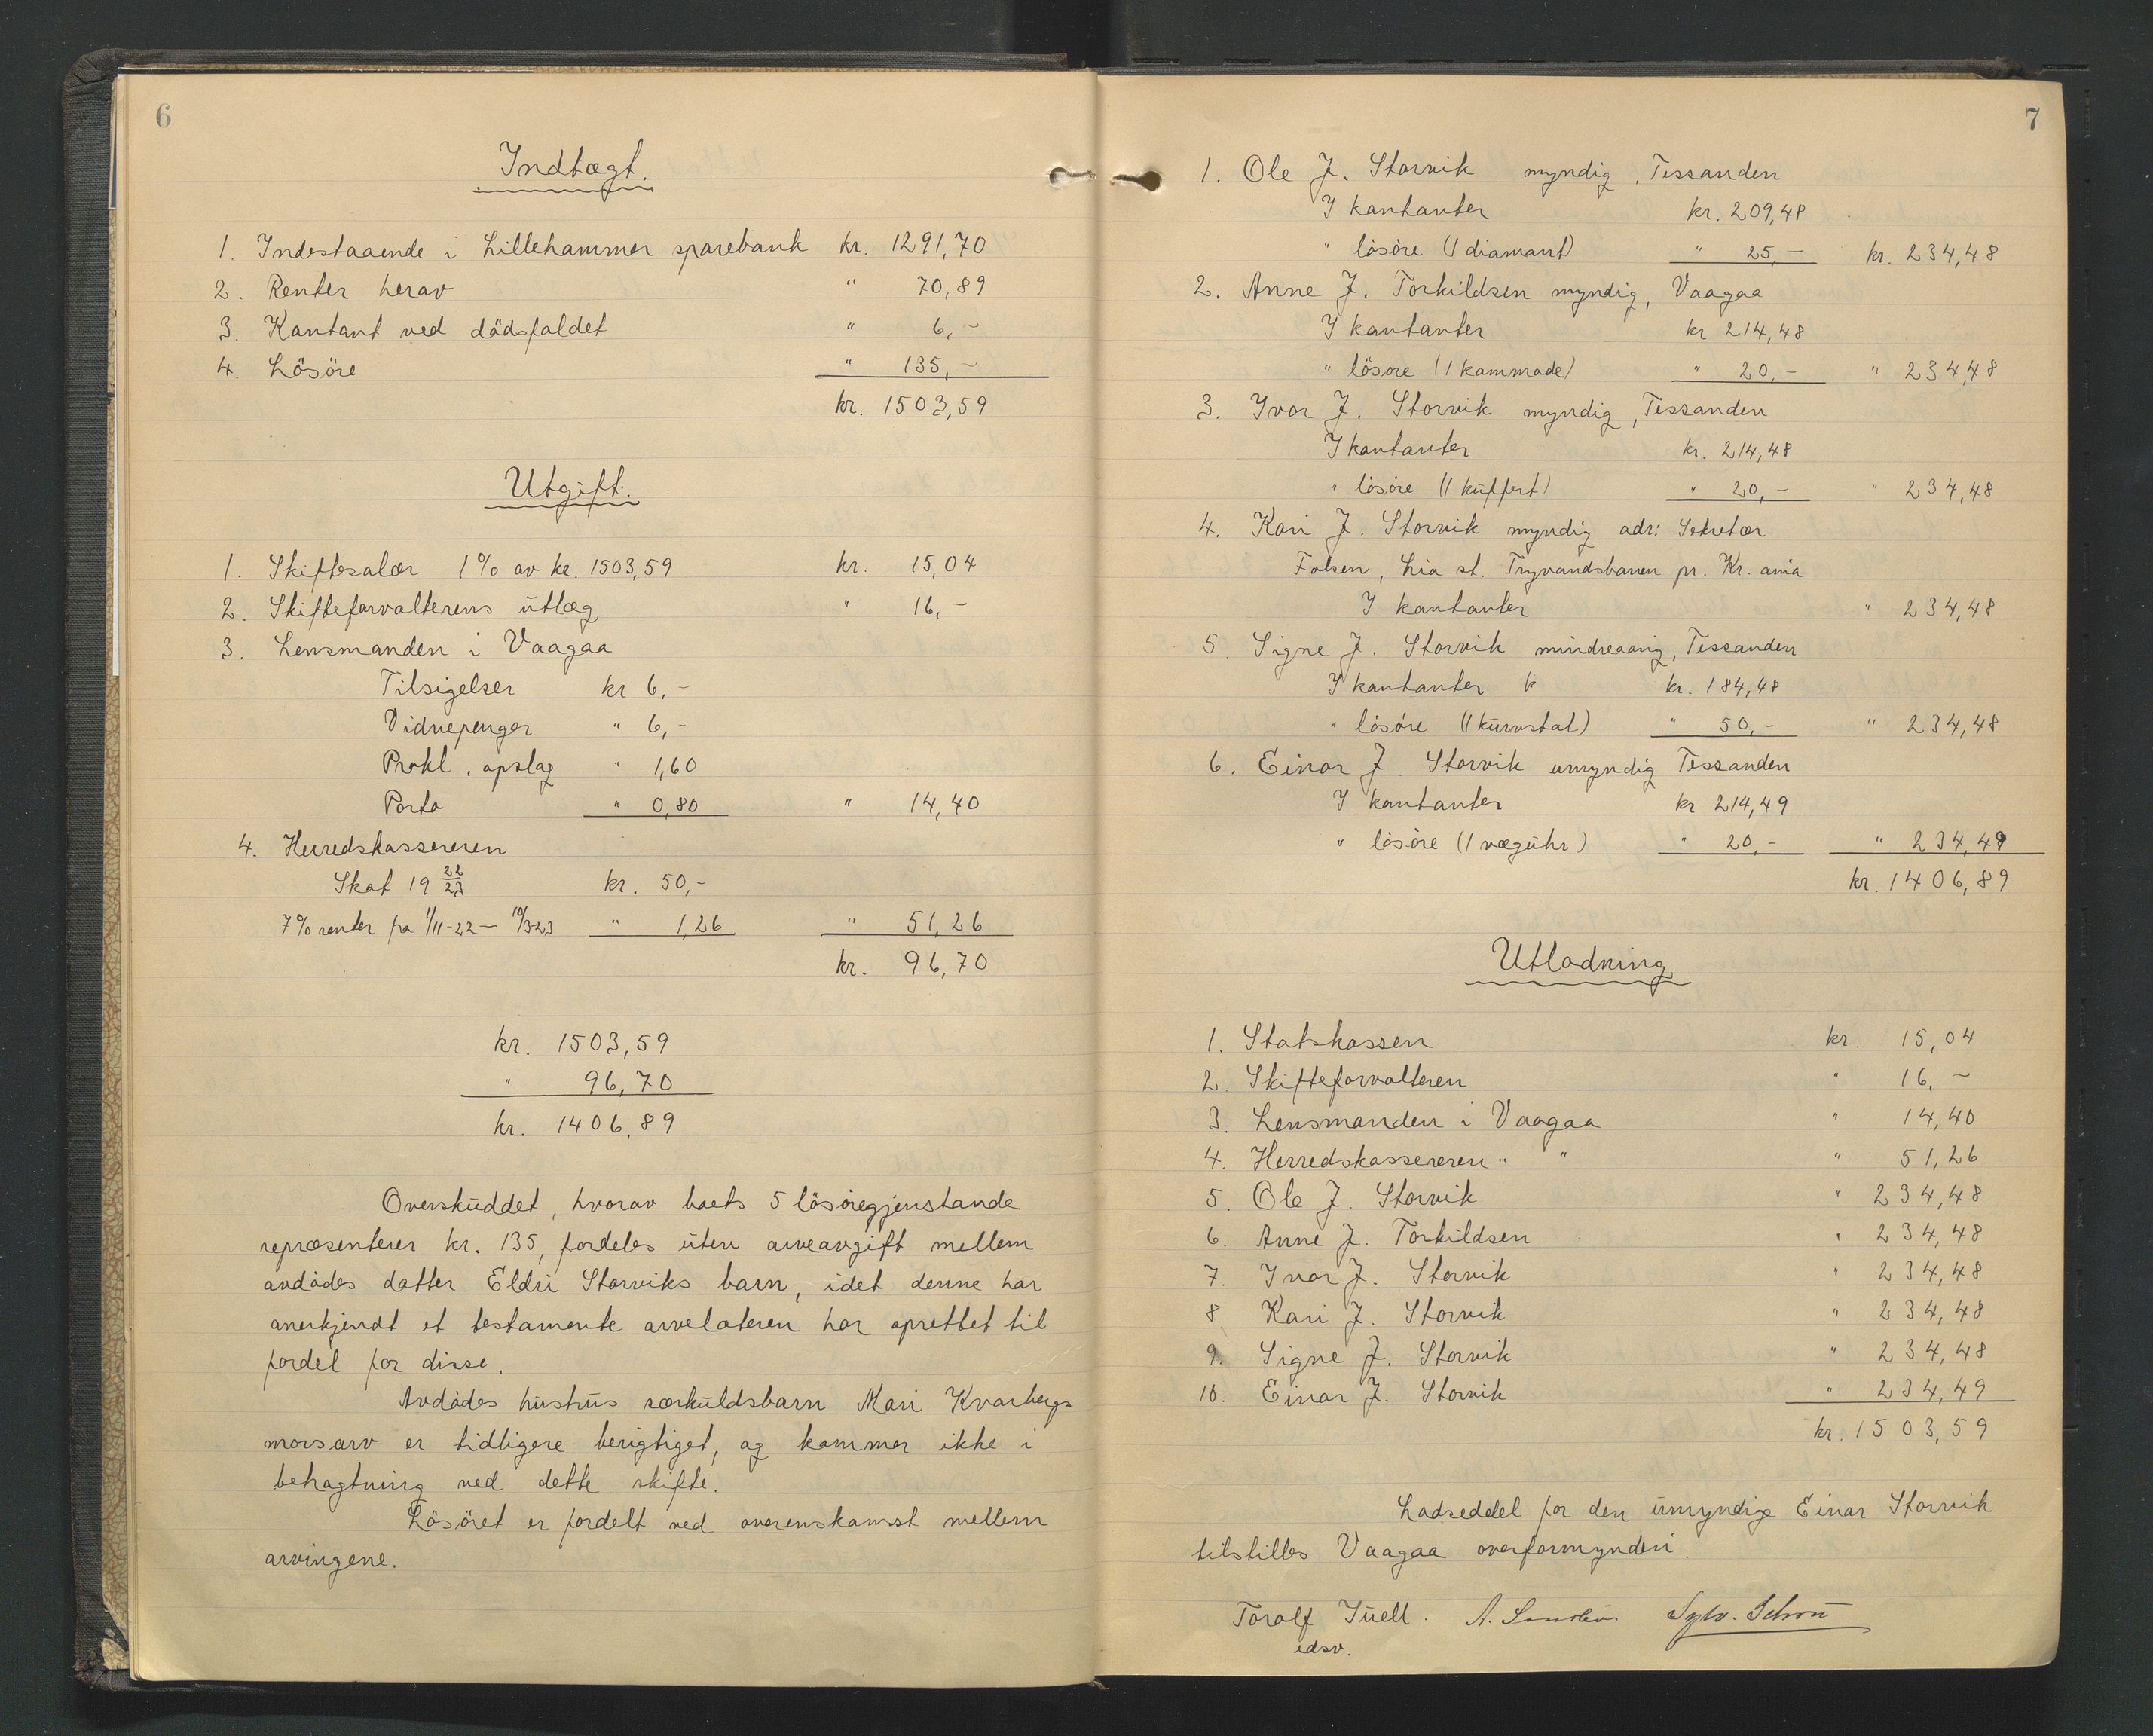 6
Indtægt.
1. Indestaaende i Lillehammer sparebank kr. 1291,70
2. Renter herav " 70,89
3. Kontant ved dödsfaldet " 6,-
4. Lösöre " 135,-
kr. 1503,59
Utgift.
1. Skiftesalær 1% av kr. 1503,59 kr. 15,04
2. Skifteforvalterens utlæg " 16,-
3. Lensmanden i Vaagaa
Tilsigelser kr 6,-
Vidnepenger " 6,-
Prokl. opslag " 1,60
Porto " 0,80 " 14,40
4. Herredskassereren
Skat 19 22/23 kr. 50,-
7% renter fra 1/11-22 - 10/3-23 " 1,26 " 51,26
kr. 96,70
kr. 1503,59
" 96,70
kr. 1406,89
Overskuddet, hvorav boets 5 lösöregjenstande
repræsenterer kr. 135, fordeles uten arveavgift mellem
avdödes datter Eldri Storviks barn, idet denne har
anerkjendt et testamente arvelateren har oprettet til
fordel for disse.
Avdödes hustrus særkuldsbarn Mari Kvarbergs
morsarv er tidligere berigtiget, og kommer ikke i
behagtning ved dette skifte.
Lösöret er fordelt ved overenskomst mellem
arvingene.
7
1. Ole J. Storvik myndig, Tessanden
I kontanter kr. 209,48
" lösöre (1 diamant) " 25,- kr. 234,48
2. Anne J. Torkildsen myndig, Vaagaa
I kontanter kr 214,48
" lösöre (1 kommode) " 20,- " 234,48
3. Ivar J. Storvik myndig, Tessanden
I kontanter kr. 214,48
" lösöre (1 kuffert) " 20,- " 234,48
4. Kari J. Storvik myndig adr: Sekretær
Folsen, Lia st. Tryvandsbanen pr. Kr.ania
I kontanter " 234,48
5. Signe J. Storvik mindreaarig, Tessanden
I kontanter k kr. 184,48
" lösöre (1 kurvstol) " 50,- " 234,48
6. Einar J. Storvik umyndig Tessanden
I kontanter kr 214,49
" lösöre (1 væguhr) " 20,- " 234,49
kr. 1406,89
Utlodning
1. Statskassen kr. 15,04
2. Skifteforvalteren " 16,-
3. Lensmanden i Vaagaa " 14,40
4. Herredskassereren " " " 51,26
5. Ole J. Storvik " 234,48
6. Anne J. Torkildsen " 234,48
7. Ivar J. Storvik " 234,48
8. Kari J. Storvik " 234,48
9. Signe J. Storvik " 234,48
10. Einar J. Storvik " 234,49
kr. 1503,59
Lodseddel for den umyndige Einar Storvik
tilstilles Vaagaa overformynderi.
Toralf Juell. A. Sylv. Schrou
edsv.